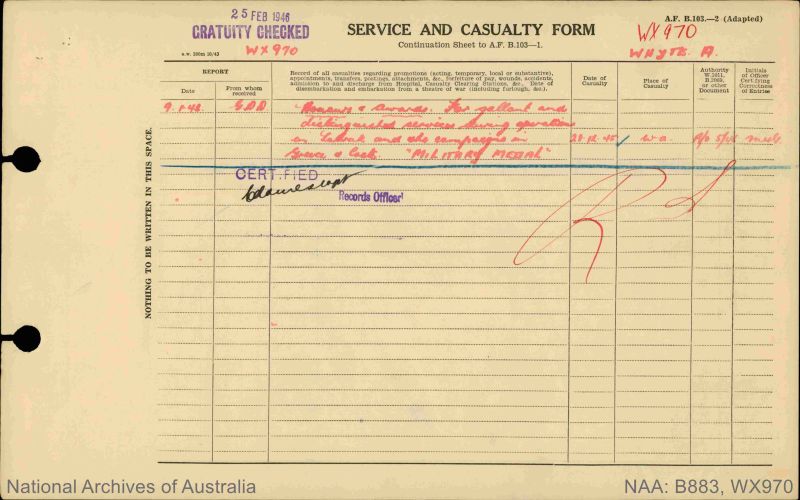 25 FEB 1946
GRATUITY CHECKED
WX970
a.w. 500m 10/43
SERVICE AND CASUALTY FORM
Continuation Sheet to A.F. B.103—1.
A.F. B.103.—2 (Adapted)
WX970
WHYTE A.
REPORT
Date
From whom received
Record of all casualties regarding promotions (acting, temporary, local or substantive),
appointments, transfers, postings, attachments, &c., forfeiture of pay, wounds, accidents,
admission to and discharge from Hospital, Casualty Clearing Stations, &c. Date of
disembarkation and embarkation from a theatre of war (including furlough, &c.).
Date of Casualty
Place of Casualty
Authority W.3011, B.2069, or other Document
Initials of Officer Certifying Correctness of Entries
Honours & Awards. For gallant and
distinguished services during operations
in and the campaigns in W.A.
Greece & "MILITARY MEDAL"
CERTIFIED
Records Officer
NOTHING TO BE WRITTEN IN THIS SPACE.
National Archives of Australia
NAA: B883, WX970